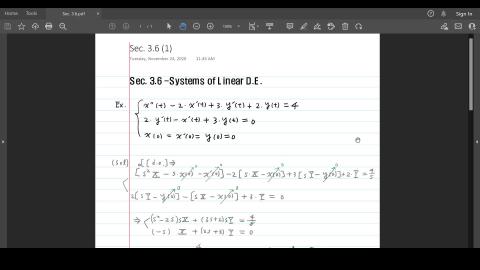 Home Tools Sec. 3.6.pdf × Sign In
Sec. 3.6 (1)
Tuesday, November 24, 2020 11:45 AM
Sec. 3.6 - Systems of Linear D.E.
Ex. { x''(t) - 2·x'(t) + 3·y'(t) + 2·y(t) = 4
2·y'(t) - x'(t) + 3·y(t) = 0
x(0) = x'(0) = y(0) = 0
(Sol) L[d.e.] ⇒
[s²X - s·x(0) - x'(0)] - 2[sX - x(0)] + 3[sY - y(0)] + 2·Y = 4/s
2[sY - y(0)] - [sX - x(0)] + 3·Y = 0
⇒ { (s²-2s)X + (3s+2)Y = 4/s
(-s) X + (2s+3)Y = 0